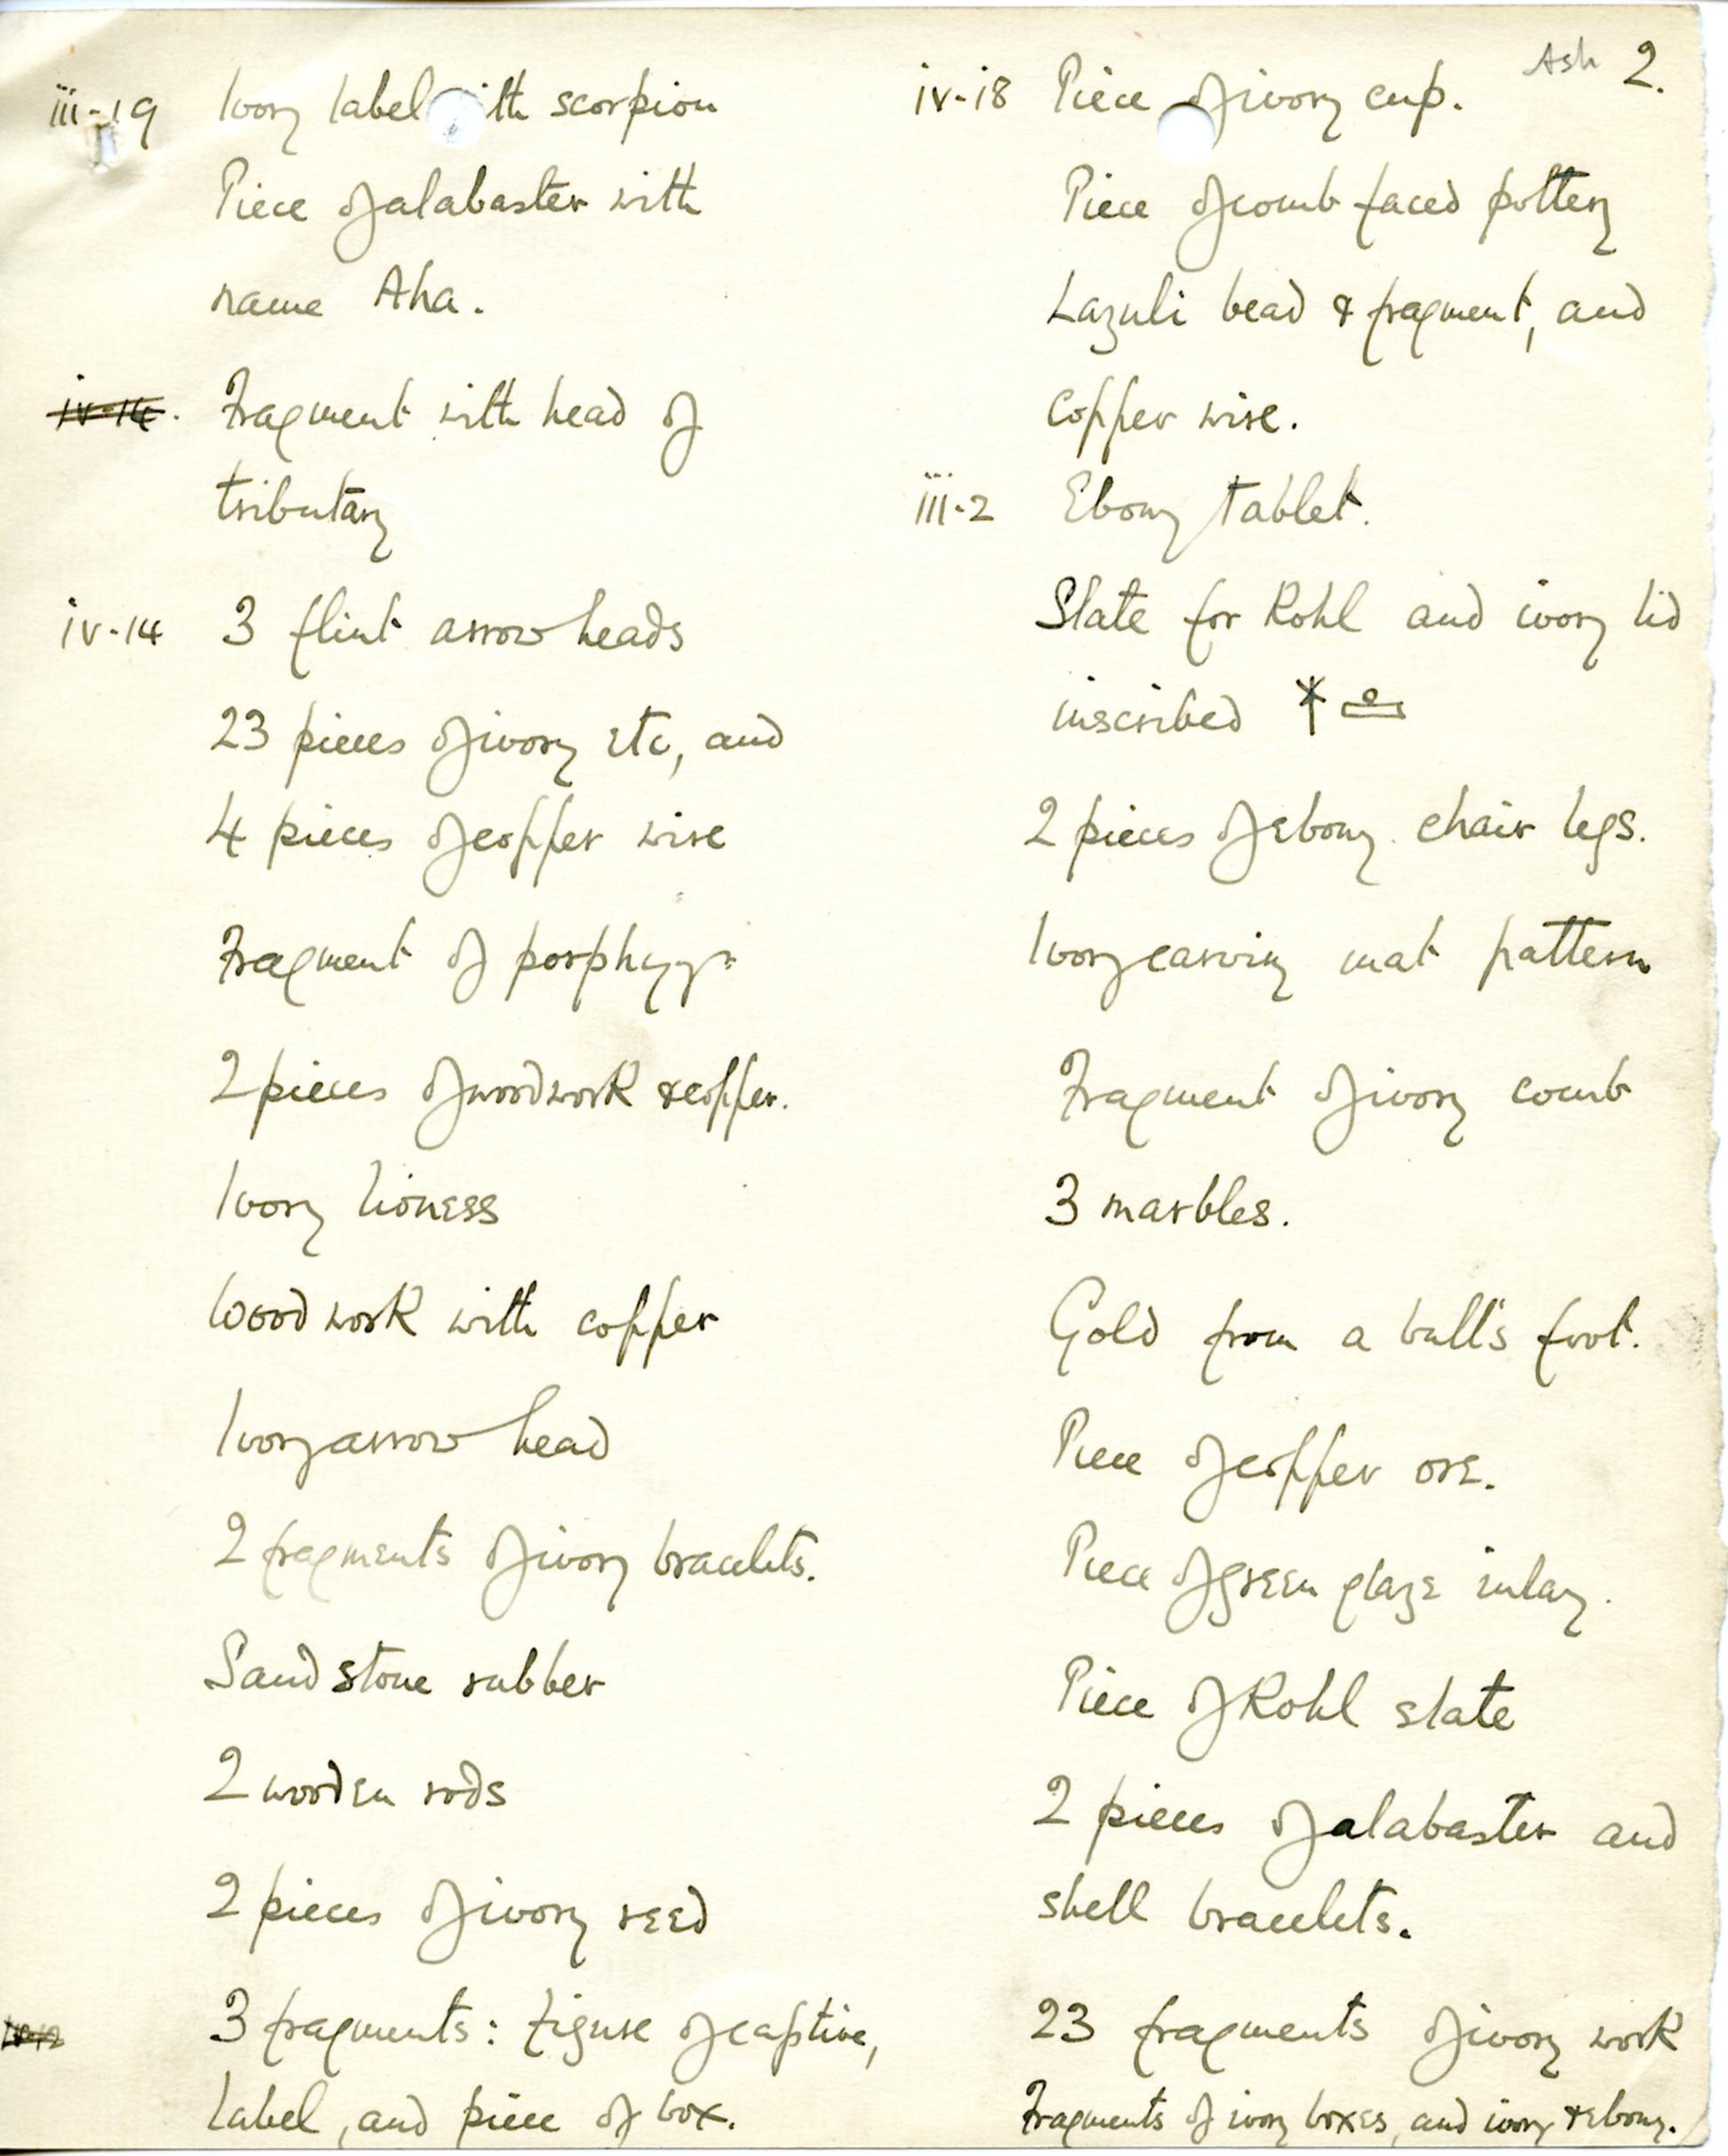 Ash 2.
iii-19 Ivory label with scorpion
Piece of alabaster with
name Aha.
iv-14. Fragment with head of
tributary
iv-14 3 flint arrow heads
23 pieces of ivory etc, and
4 pieces of copper wire
Fragment of porphyry
2 pieces of woodwork & copper.
Ivory lioness
Woodwork with copper
Ivory arrow head
2 fragments of ivory bracelets.
Sandstone rubber
2 wooden rods
2 pieces of ivory reed
3 fragments: figure of captive,
label, and piece of box.
iv-18 Piece of ivory cup.
Piece of comb faced pottery
Lazuli bead & fragment, and
copper wire.
iii-2 Ebony tablet.
Slate for Kohl and ivory lid
inscribed
2 pieces of ebony chair legs.
Ivory carving mat pattern
Fragment of ivory comb
3 marbles.
Gold from a bull's foot.
Piece of copper ore.
Piece of green glaze inlay.
Piece of Kohl slate
2 pieces of alabaster and
shell bracelets.
23 fragments of ivory work
Fragments of ivory boxes, and ivory & ebony.